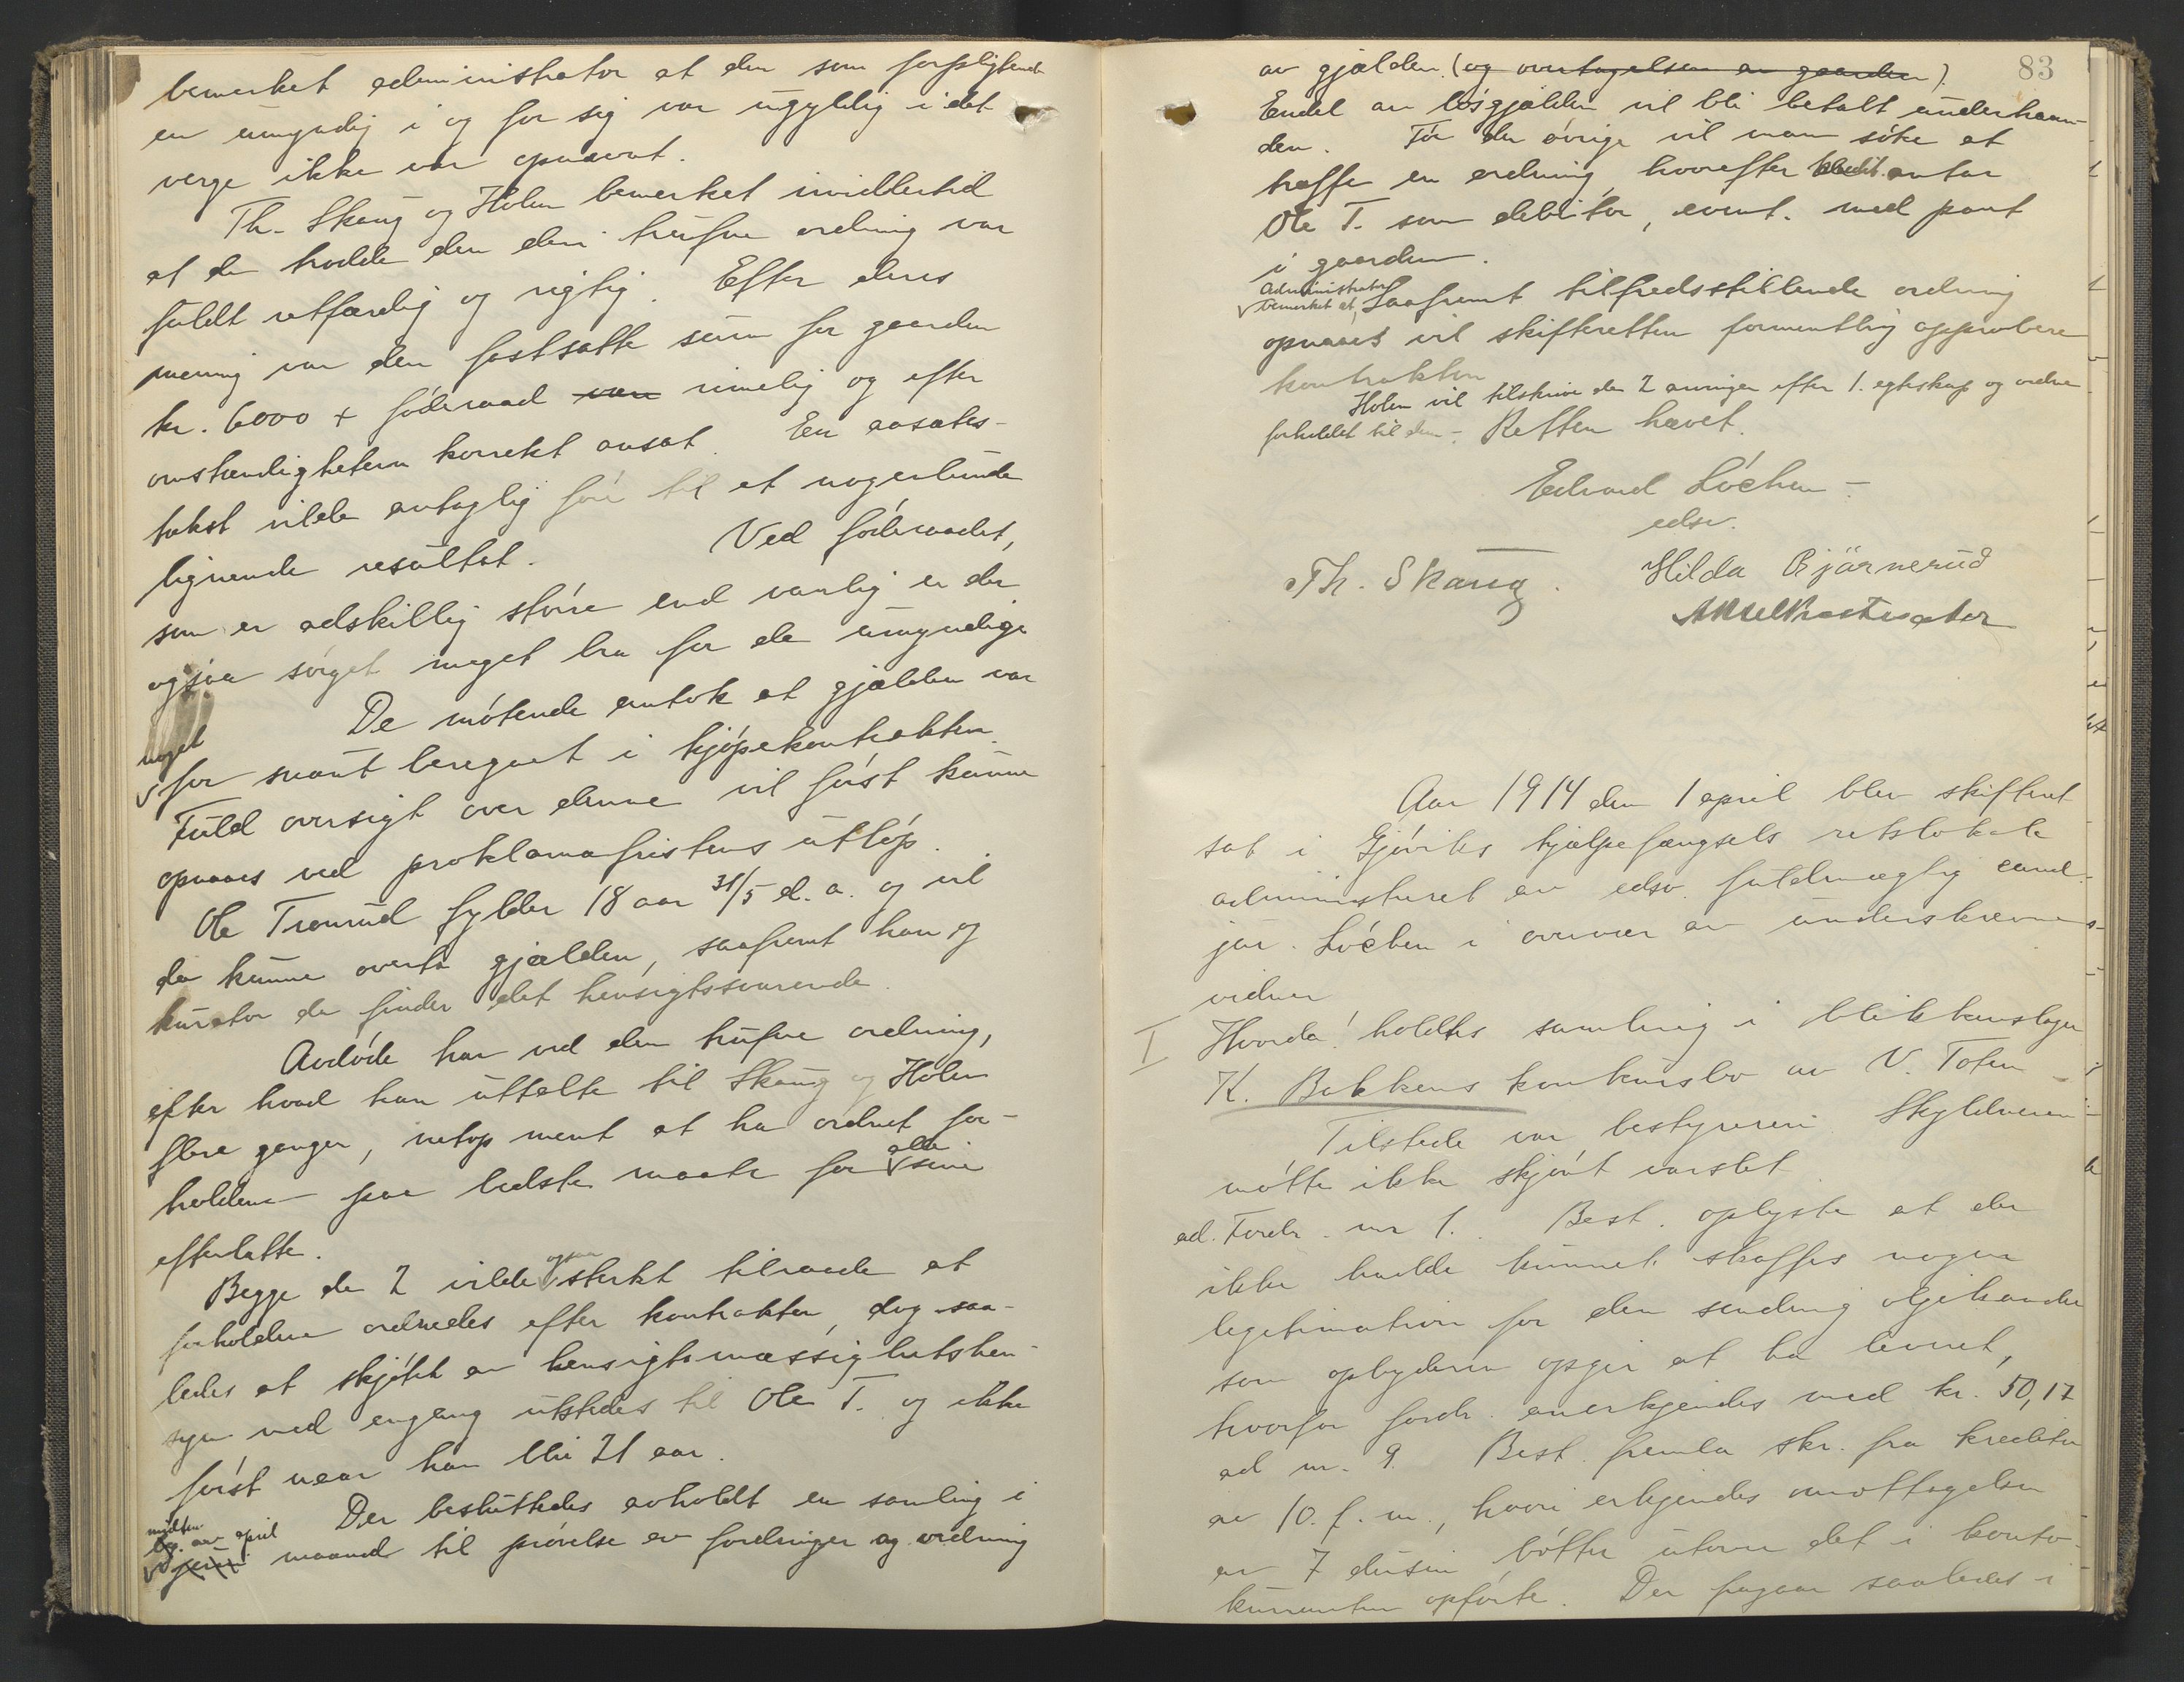 bemerket administrator at den som forpligtende
en umyndig i og for sig var ugyldig i det
verge ikke var opnævnt.
Th. Skaug og Holen bemerket imidlertid
at de trodde den deri trufne ordning var
fuldt retfærdig og rigtig. Efter deres
mening var den fastsatte sum for gaarden
kr. 6000 + föderaad var rimelig og efter
omstændigheterne korrekt ansat. En avsæts-
takst vilde antaglig före til et nogenlunde
lignende resultat. Ved föderaadet,
som er adskillig större end vanlig er der
ogsaa sörget meget bra for de umyndige
De mötende antok at gjælden var
noget
for snaut beregnet i kjöpekontrakten.
Fuld oversigt over denne vil först kunne
opnaaes ved proklamafristens utlöp.
Ole Tronrud fylder 18 aar 31/5 d. a. og vil
da kunne overta gjælden, saafremt han og
kurator da finder det hensigtssvarende.
Avdöde har ved den trufne ordning,
efter hvad han uttalte til Skaug og Holen
flere ganger, netop ment at ha ordnet for-
holdene paa bedste maate for alle sine
efterlatte.
Begge de 2 vilde ogsaa sterkt tilraade at
forholdene ordnedes efter kontrakten, dog saa-
ledes at skjötet av hensigtsmæssighetshen-
syn med engang utstedes til Ole T. og ikke
först naar han blir 21 aar.
Der besluttedes avholdt en samling i
midten av april
juni maaned til prövelse av fordringer og ordning
83
av gjælden. (og overtagelsen av gaarden).
Endel av lösgjælden vil bli betalt underhaan-
den. For den övrige vil man söke at
træffe en ordning hvorefter kredit. antar
Ole T. som debitor, event. med pant
i gaarden.
Administrator
bemerket at, Saafremt tilfredsstillende ordning
opnaaes vil skifteretten formentlig approbere
kontrakten
Holen vil tilskrive de 2 arvinger efter 1. egteskap og ordne
forholdet til dem. Retten hævet.
Edvard Löchen
edsv.
Th. Skaug. Hilda Bjärnerud
Aar 1914 den 1 april blev skifteret
sat i Gjöviks hjælpefængsels retslokale
administreret av edsv. fuldmægtig cand.
jur. Löchen i overvær av underskrevne
vidner
I Hvorda! holdtes samling i blikkenslager
K. Bakkens konkursbo av V. Toten
Tilstede var bestyreren Skyldneren
mötte ikke skjönt varslet
ad. Fordr. nr 1. Best. oplyste at der
ikke hadde kunnet skaffes nogen
legitimation for den sending oljekander
som opbyderen opgir at ha levert,
hvorfor fordr. anerkjendes med kr. 50,17
ad nr. 9. Best. fremla skr. fra kreditor
av 10. f. m., hvori erkjendes mottagelsen
av 7 dusin bötter utover det i konto-
kuranten opförte. Der fragaar saaledes i